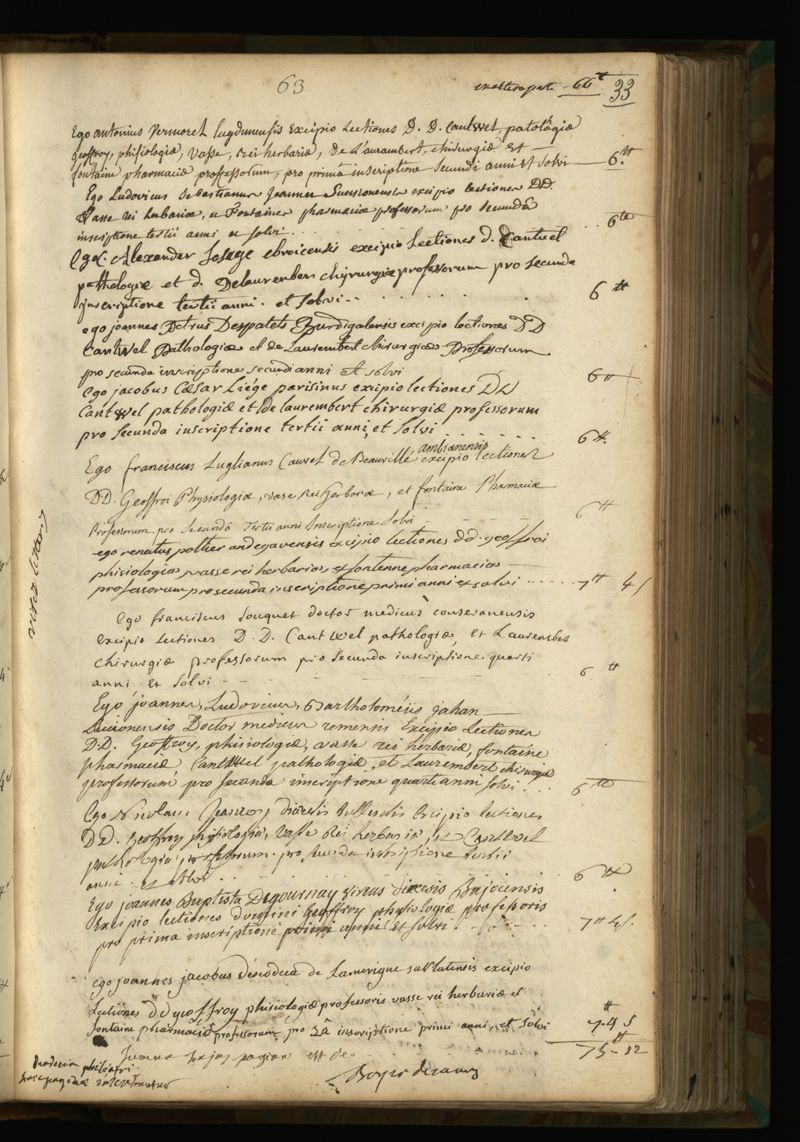 63
ex altera parte 66 ₶
33
Ego antonius Vermorel lugdunensis Excipio Lectiones D. D. Cantwel, patologiæ
geoffroy, phisiologiæ, Vasse, rei herbariæ, de Laurambert, chirurgiæ et
fontaine pharmaciæ professorum, pro primâ inscriptione secundi anni et solvi 6 ₶
Ego Ludovicus Sebastianus Joannes Suessionensis excipio lectiones DD.
Vasse rei herbariæ, et Fontaines pharmaciæ professorum pro secundâ
inscriptione tertii anni et solvi 6 ₶
Ego Alexander Lesage ebroicensis excipio Lectiones d. Cantuel
pathologiæ et d. Delaurenbert chyrurgiæ professorum pro secunda
inscriptione tertii anni. et solvi 6 ₶
ego joannes Petrus Despatets Burdigalensis excipio lectiones DD
Cantwel Pathologiæ et de Laurembert chirurgiæ Professorum
pro secunda inscriptione secundi anni et solvi 6 ₶
Ego jacobus Cæsar Liége parisinus excipio lectiones DD
Cantwel pathologiæ et de laurembert chirurgiæ professorum
pro secunda inscriptione tertii anni, et solvi 6 ₶
Ego franciscus Luglianus Cauvel de Beauvillé ambianensis excipio lectiones
DD. Geoffroi Physiologiæ, vase Rei Herbariæ, et fontaine Pharmaciæ
Professorum pro Secundâ Tertii anni Inscriptione Solvi 6 ₶
ego renatus poltier andegavensis excipio lectiones dd. geoffroi
phisiologiæ vasse rei herbariæ, et fontenne pharmaciæ
professorum pro secunda inscriptione primi anni et solvi 7 ₶ 4 s
Ego franciscus souquet doctor medicus conseranensis
Excipio Lectiones D. D. Cantwel pathologiæ, et Laurember
chirurgiæ professorum pro secunda inscriptione quarti
anni et solvi 6 ₶
Ego joannes, Ludovicus, Bartholoméus jahan
Lucionensis Doctor medicus remensis Excipio Lectiones
D.D. Geoffroy, phisiologiæ, vasse rei herbariæ, fontaine
pharmaciæ Cantwel pathologiæ, et Laurembert chirurgiæ
professorum pro secunda inscriptione quarti anni solvi 6 ₶
Ego Nicolaus diœcesis Excipio lectiones
DD. Geoffroy physiologiæ, Vasse Rei herbariæ, et Cantwel
pathologiæ professorum pro secunda inscriptione tertii
anni et solvi 6 ₶
Ego joannes Baptista Degournay diœcesis Bajocensis
Excipio lectiones domini Geoffroy physiologiæ professoris
pro prima inscriptione primi anni et solvi 7 ₶ 4 s.
ego joannes jacobus descodeca de Lamerigue sarlatensis excipio
Lectiones dd geoffroy phisiologiæ professoris vasse rei herbariæ et
fontaine pharmaciæ professorum pro 2â inscriptione primi anni, et solvi 7 ₶ 4 s
Summa hujus paginæ est de 75 ₶ 12